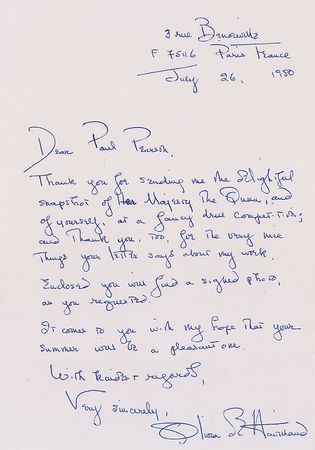 3 rue Benouville
F 75116 Paris France
July 26, 1980
Dear Paul Pearson,
Thank you for sending me the delightful
snapshot of Her Majesty the Queen, and
of yourself, at a fancy dress competition;
and thank you, too, for the very nice
things your letter says about my work.
Enclosed you will find a signed photo,
as you requested.
It comes to you with my hope that your
summer will be a pleasant one.
With kindest regards,
Very sincerely,
Olivia de Havilland